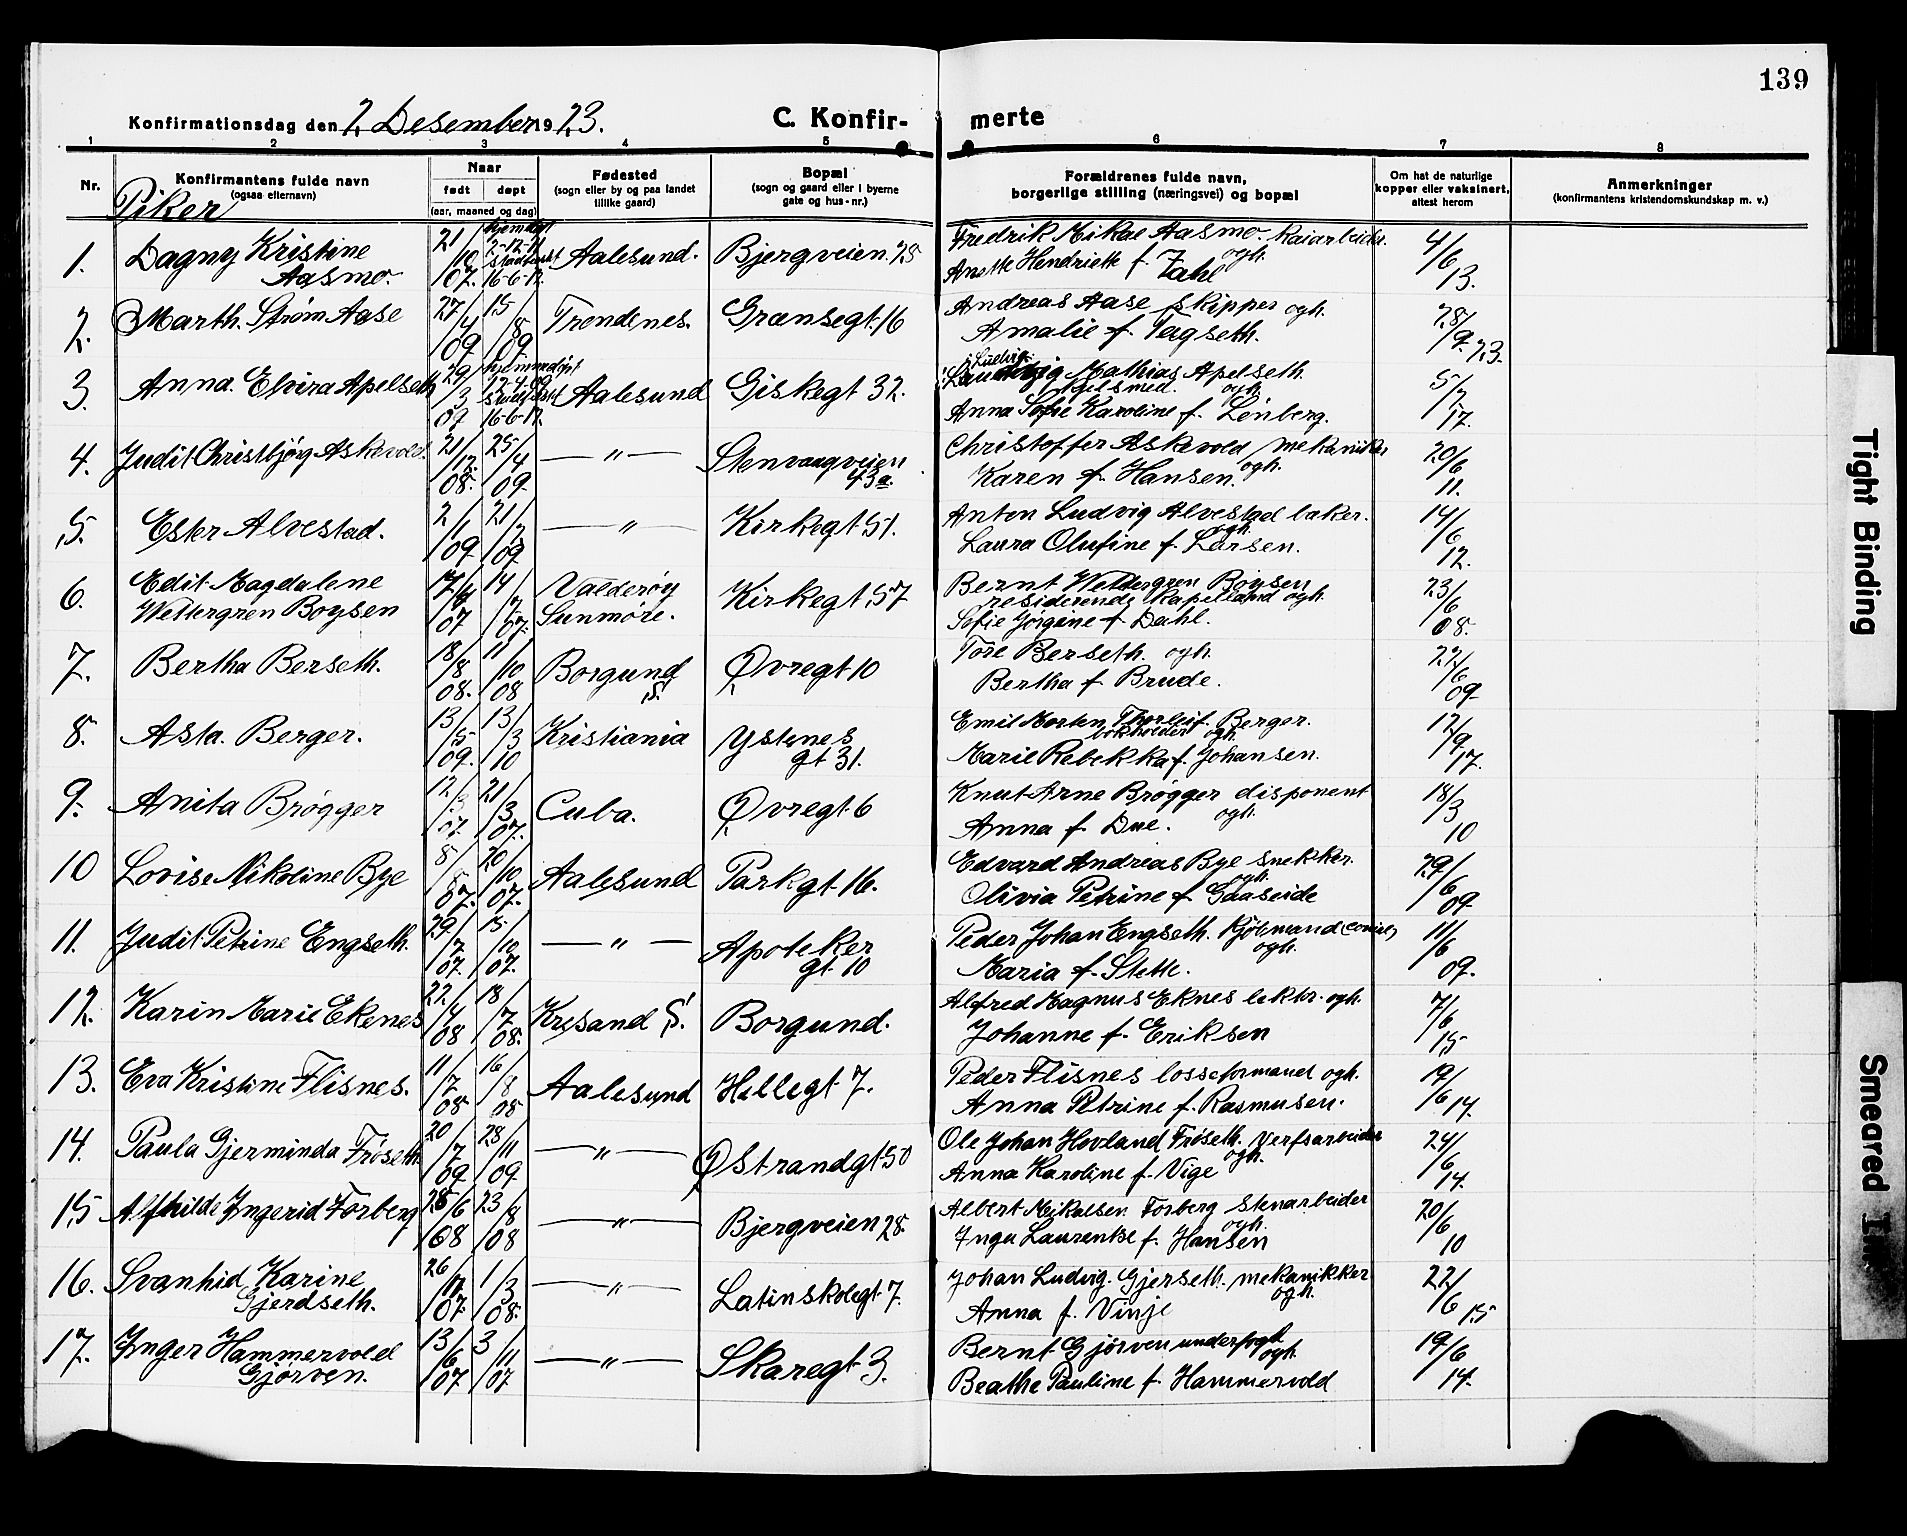 139
Konfirmationsdag den 2 Desember 1923.
C. Konfirmerte
1 2 3 4 5 6 7 8
Nr.
Konfirmantens fulde navn
(ogsaa efternavn)
Piker
Naar
født døpt
(aar, maaned og dag)
Fødested
(sogn eller by og paa landet
tillike gaard)
Bopæl
(sogn og gaard eller i byerne
gate og hus-nr.)
Forældrenes fulde navn,
borgerlige stilling (næringsvei) og bopæl
Om hat de naturlige
kopper eller vaksinert,
attest herom
Anmerkninger
(konfirmantens kristendomskundskap m. v.)
1. Dagny Kristine Aasmo. 21/10 07. hjemdøpt 2-12-11 stadfæst 16-6-12. Aalesund. Bjergveien 25
Fredrik Mikae Aasmo. Kaiarbeider. ogh.
Anette Hendriette f. Zahl
4/6 13.
2. Marth. Strøm Aase 27/4 09 15/8 09 Trendenes. Grænsegt. 16
Andreas Aase skipper ogh.
Amalie f. Tegseth.
28/9. 23.
3. Anna. Elvira Apelseth 29/3 07 hjemmedøpt 12-4-09 stadfæst 16-6-12. Aalesund Giskegt 32.
Ludvig Mathias Apelseth ogh.
Anna Sofie Karoline f. Lönberg.
5/7 17.
4. Judit Christbjørg Askevold. 21/12. 08. 25/4 09. —"— Stenvaagveien 43a.
Christoffer Askevold mekaniker ogh.
Karen f. Hansen.
20/6 11.
5. Ester Alvestad. 2/1 09 21/2 09. —"— Kirkegt 51.
Anton Ludvig Alvestad baker. ogh.
Laura Olufine f. Larsen.
14/6 12.
6. Edit Magdalene Wettergren Boysen 07 14/7 07. Valderøy Sunmøre. Kirkegt 57
Bernt Wettergren Boysen
residerende kapelland ogh.
Sofie Jørgine f. Dahl.
23/6 08.
7. Bertha Berseth. 18/8 08. 11/10 08 Borgund S. Øvregt 10
Tore Berseth. ogh.
Bertha f. Brude.
22/6 09.
8. Asta. Berger. 13/5 09. 13/3 10 Kristiania Ystenes gt 31.
Emil Morten Thorleif. Berger.
bokholder ogh.
Marie Rebekka f. Johansen.
12/9 17.
9. Anita Brøgger 12/3 07. 21/3 07. Cuba. Øvregt 6
Knut Arne Brøgger disponent ogh.
Anna f. Due.
18/3 10
10 Lovise Nikoline Bye 8/5 07. 20/10 07. Aalesund Parkgt 16.
Edvard Andreas Bye snekker. ogh.
Olivia Petrine f. Gaaseide
29/6 09.
11. Judit Petrine Engseth. 29/7 07. 15/10 07. —"— Apoteker gt. 10
Peder Johan Engseth. Kjöbmand ogh.
Maria f. Stette.
11/6 09.
12. Karin Marie Ekenes 22/4 08 18/7 08. Krsand S. Borgund.
Alfred Magnus Eknes lektr. ogh.
Johanne f. Eriksen
7/6 15
13. Eva Kristine Flisnes. 11/7 08 16/8 08 Aalesund Hellegt 7.
Peder Flisnes losseformand ogh.
Anna Petrine f. Rasmusen.
19/6 14.
14. Paula Gjerminda Frøseth 20/7 09 28/11 09. —"— Østrandgt 50
Ole Johan Hovland Frøseth. Verfsarbeider ogh.
Anna Karoline f. Vige
24/6 14.
15 Alfhilde Ingerid Forberg 28/6 08 23/8 08 —"— Bjergveien 28.
Albert Mikalsen Forberg Stenarbeider ogh.
Inga Laurentse f. Hansen
20/6 10
16. Svanhid Karine Gjerdseth. 26/12 07. 1/3 08. —"— Latinskolegt 7.
Johan Ludvig. Gjerseth. mekanikker ogh.
Anna f. Vinje
22/6 15
17. Inger Hammervold Gjørven. 13/6 07 3/11 07 —"— Skaregt 3.
Bernt Gjørven underfogt ogh.
Beathe Pauline f. Hammervold
19/6 14.
Tight Binding
Smeared Ink